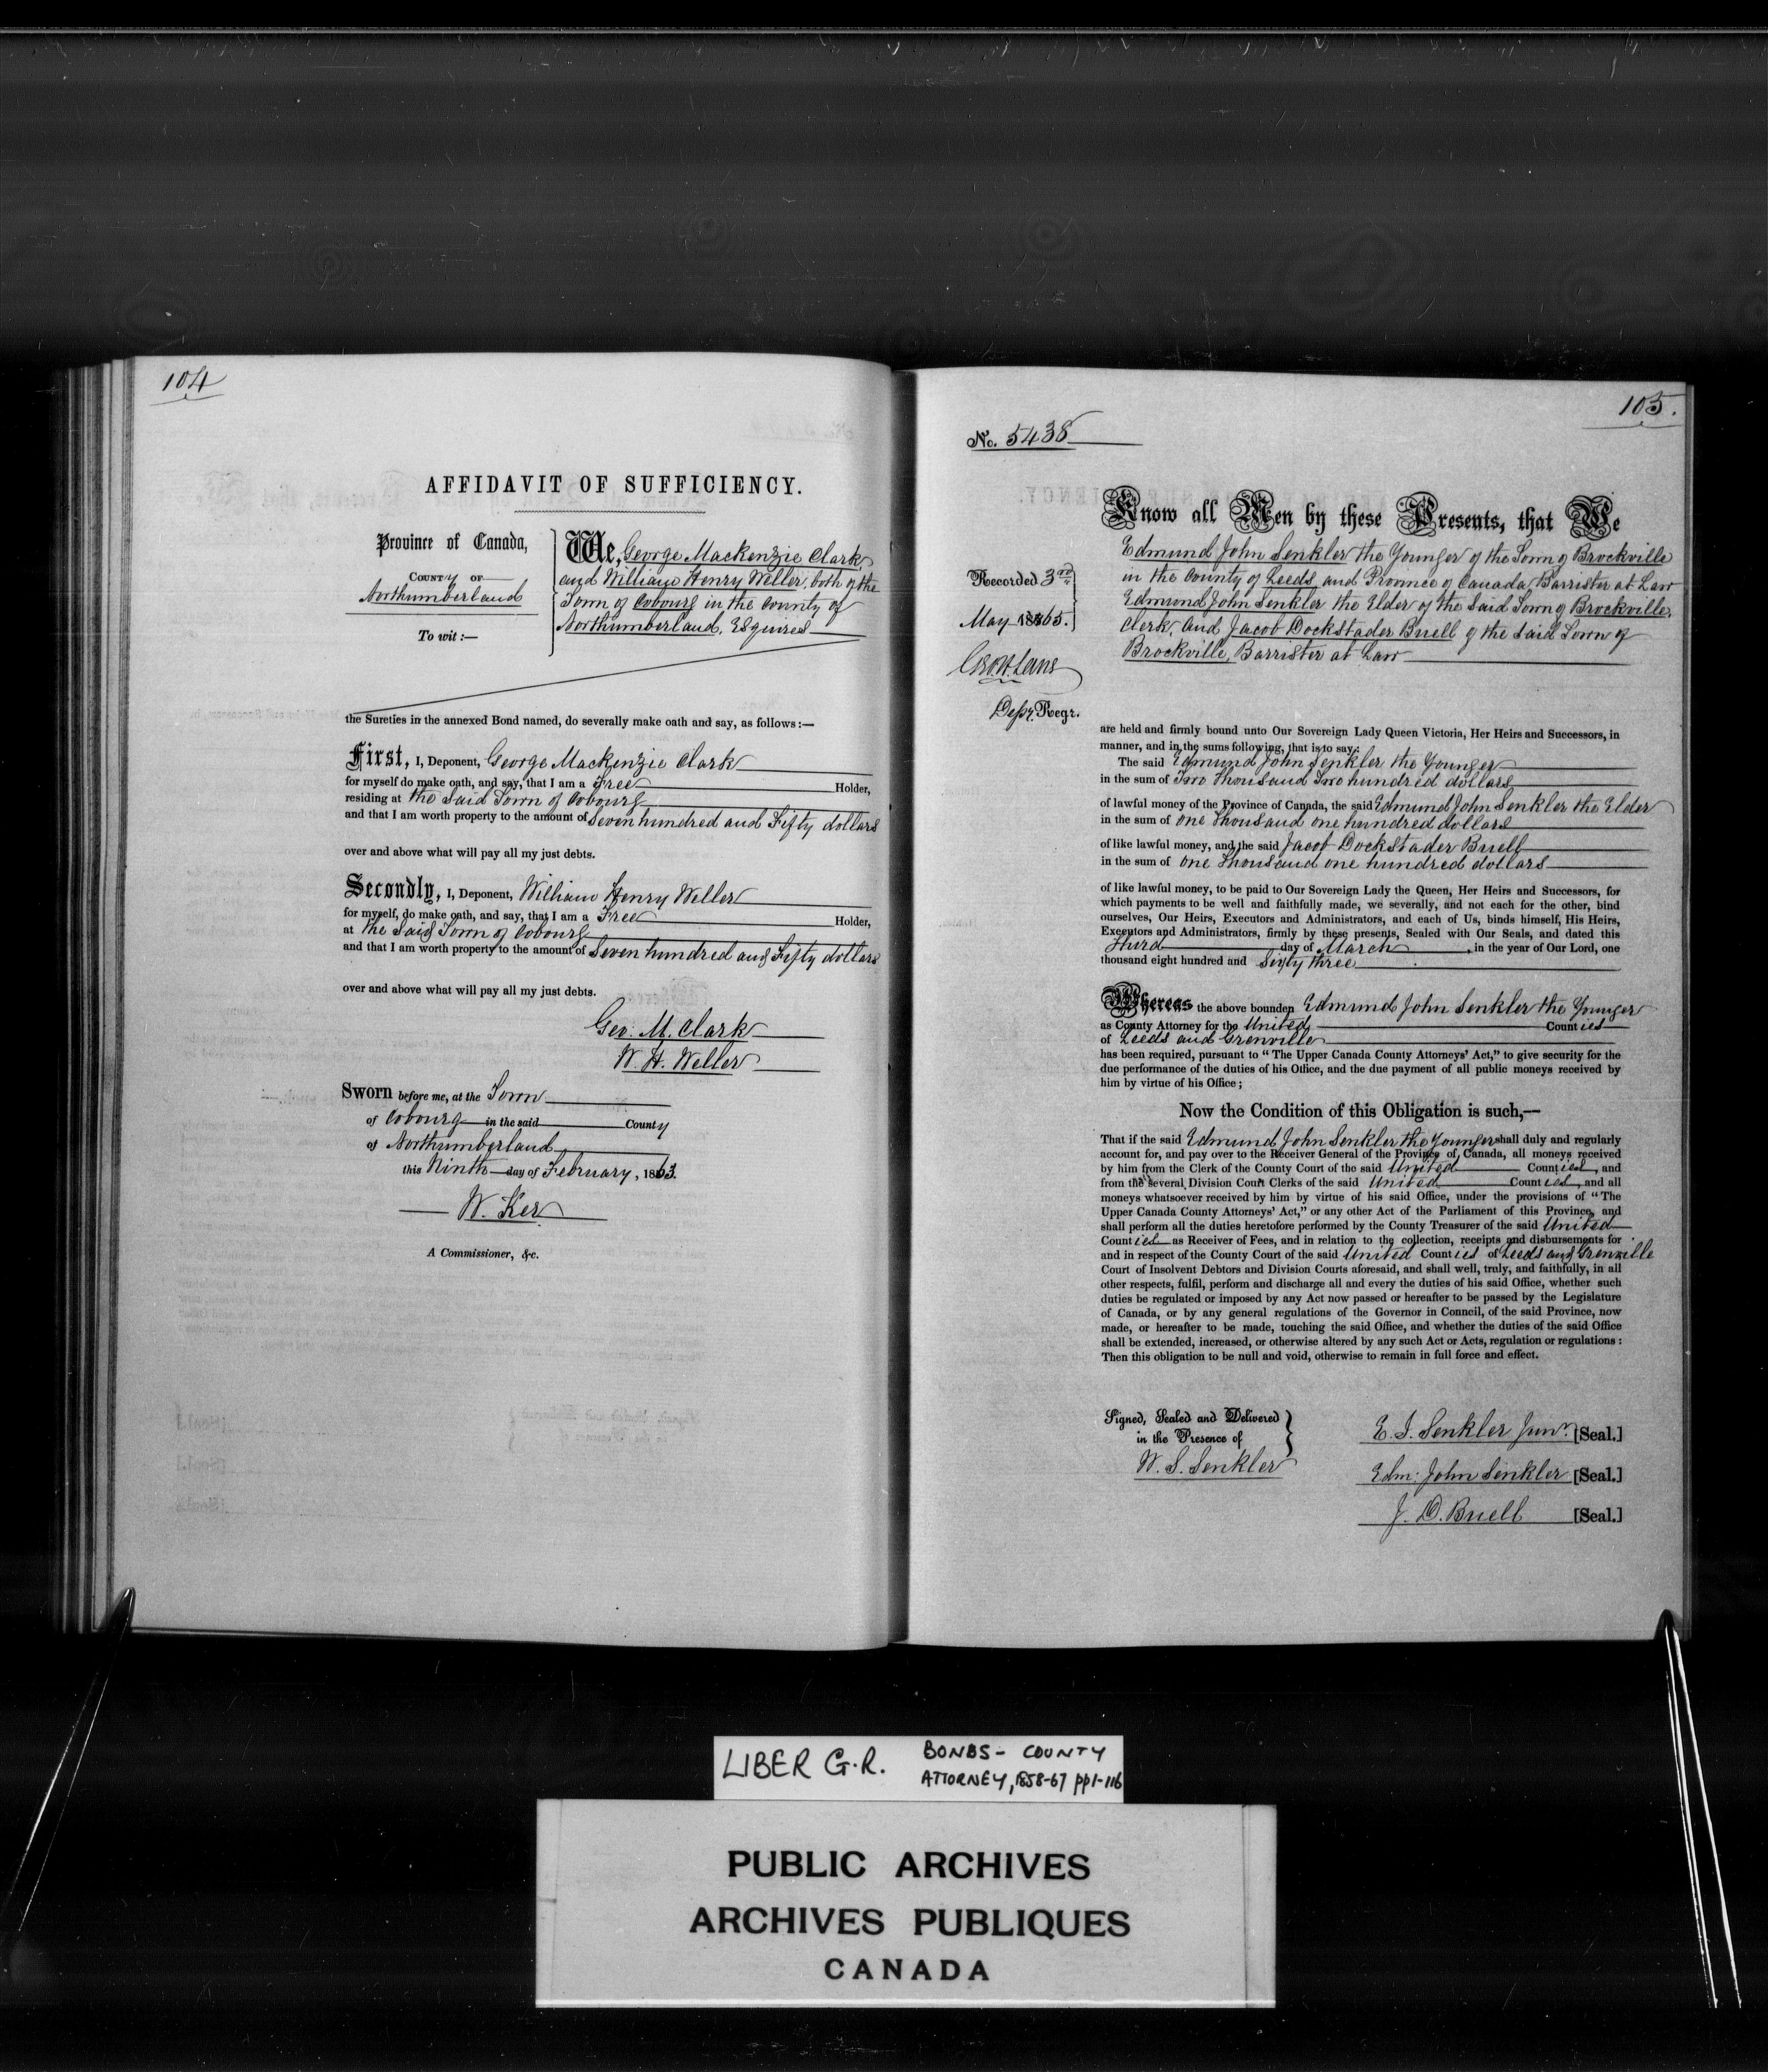 104
AFFIDAVIT OF SUFFICIENCY.
Province of Canada,
COUNTY OF
Northumberland
To wit :—
We, George Mackenzie Clark,
and William Henry Weller, both of the
Town of Cobourg in the County of
Northumberland, Esquires
the Sureties in the annexed Bond named, do severally make oath and say, as follows :—
First, I, Deponent, George Mackenzie Clark
for myself do make oath, and say, that I am a Free Holder,
residing at the Said Town of Cobourg
and that I am worth property to the amount of Seven hundred and Fifty dollars
over and above what will pay all my just debts.
Secondly, I, Deponent, William Henry Weller
for myself, do make oath, and say, that I am a Free Holder,
at the Said Town of Cobourg
and that I am worth property to the amount of Seven hundred and Fifty dollars
over and above what will pay all my just debts.
Geo: M. Clark
W. H. Weller
Sworn before me, at the Town
of Cobourg in the said County
of Northumberland
this Ninth day of February, 1863.
W. Ker
A Commissioner, &c.
105.
No. 5438
Know all Men by these Presents, that We
Edmund John Senkler the Younger of the Town of Brockville
in the County of Leeds and Province of Canada, Barrister at Law
Edmund John Senkler the Elder of the Said Town of Brockville,
Clerk, and Jacob Dockstader Buell of the Said Town of
Brockville, Barrister at Law
Recorded 3rd
May 1865.
Geo. H. Lane
Depy. Regr.
are held and firmly bound unto Our Sovereign Lady Queen Victoria, Her Heirs and Successors, in
manner, and in the sums following, that is to say:
The said Edmund John Senkler the Younger
in the sum of Two Thousand Two hundred dollars
of lawful money of the Province of Canada, the said Edmund John Senkler the Elder
in the sum of One Thousand one hundred dollars
of like lawful money, and the said Jacob Dockstader Buell
in the sum of One Thousand one hundred dollars
of like lawful money, to be paid to Our Sovereign Lady the Queen, Her Heirs and Successors, for
which payments to be well and faithfully made, we severally, and not each for the other, bind
ourselves, Our Heirs, Executors and Administrators, and each of Us, binds himself, His Heirs,
Executors and Administrators, firmly by these presents, Sealed with Our Seals, and dated this
Third day of March, in the year of Our Lord, one
thousand eight hundred and Sixty three
Whereas the above bounden Edmund John Senkler the Younger
as County Attorney for the United Counties
of Leeds and Grenville
has been required, pursuant to "The Upper Canada County Attorneys' Act," to give security for the
due performance of the duties of his Office, and the due payment of all public moneys received by
him by virtue of his Office ;
Now the Condition of this Obligation is such,—
That if the said Edmund John Senkler the Younger shall duly and regularly
account for, and pay over to the Receiver General of the Province of Canada, all moneys received
by him from the Clerk of the County Court of the said United Counties, and
from the several Division Court Clerks of the said United Counties, and all
moneys whatsoever received by him by virtue of his said Office, under the provisions of "The
Upper Canada County Attorneys' Act," or any other Act of the Parliament of this Province, and
shall perform all the duties heretofore performed by the County Treasurer of the said United
Counties as Receiver of Fees, and in relation to the collection, receipts and disbursements for
and in respect of the County Court of the said United Counties of Leeds and Grenville
Court of Insolvent Debtors and Division Courts aforesaid, and shall well, truly, and faithfully, in all
other respects, fulfil, perform and discharge all and every the duties of his said Office, whether such
duties be regulated or imposed by any Act now passed or hereafter to be passed by the Legislature
of Canada, or by any general regulations of the Governor in Conncil, of the said Province, now
made, or hereafter to be made, touching the said Office, and whether the duties of the said Office
shall be extended, increased, or otherwise altered by any such Act or Acts, regulation or regulations :
Then this obligation to be null and void, otherwise to remain in full force and effect.
Signed, Sealed and Delivered
in the Presence of
W. S. Senkler
E. J. Senkler Junr. [Seal.]
Edm: John Senkler [Seal.]
J. D. Buell [Seal.]
LIBER G.R. BONDS - COUNTY
ATTORNEY, 1858-67 pp1-116
PUBLIC ARCHIVES
ARCHIVES PUBLIQUES
CANADA